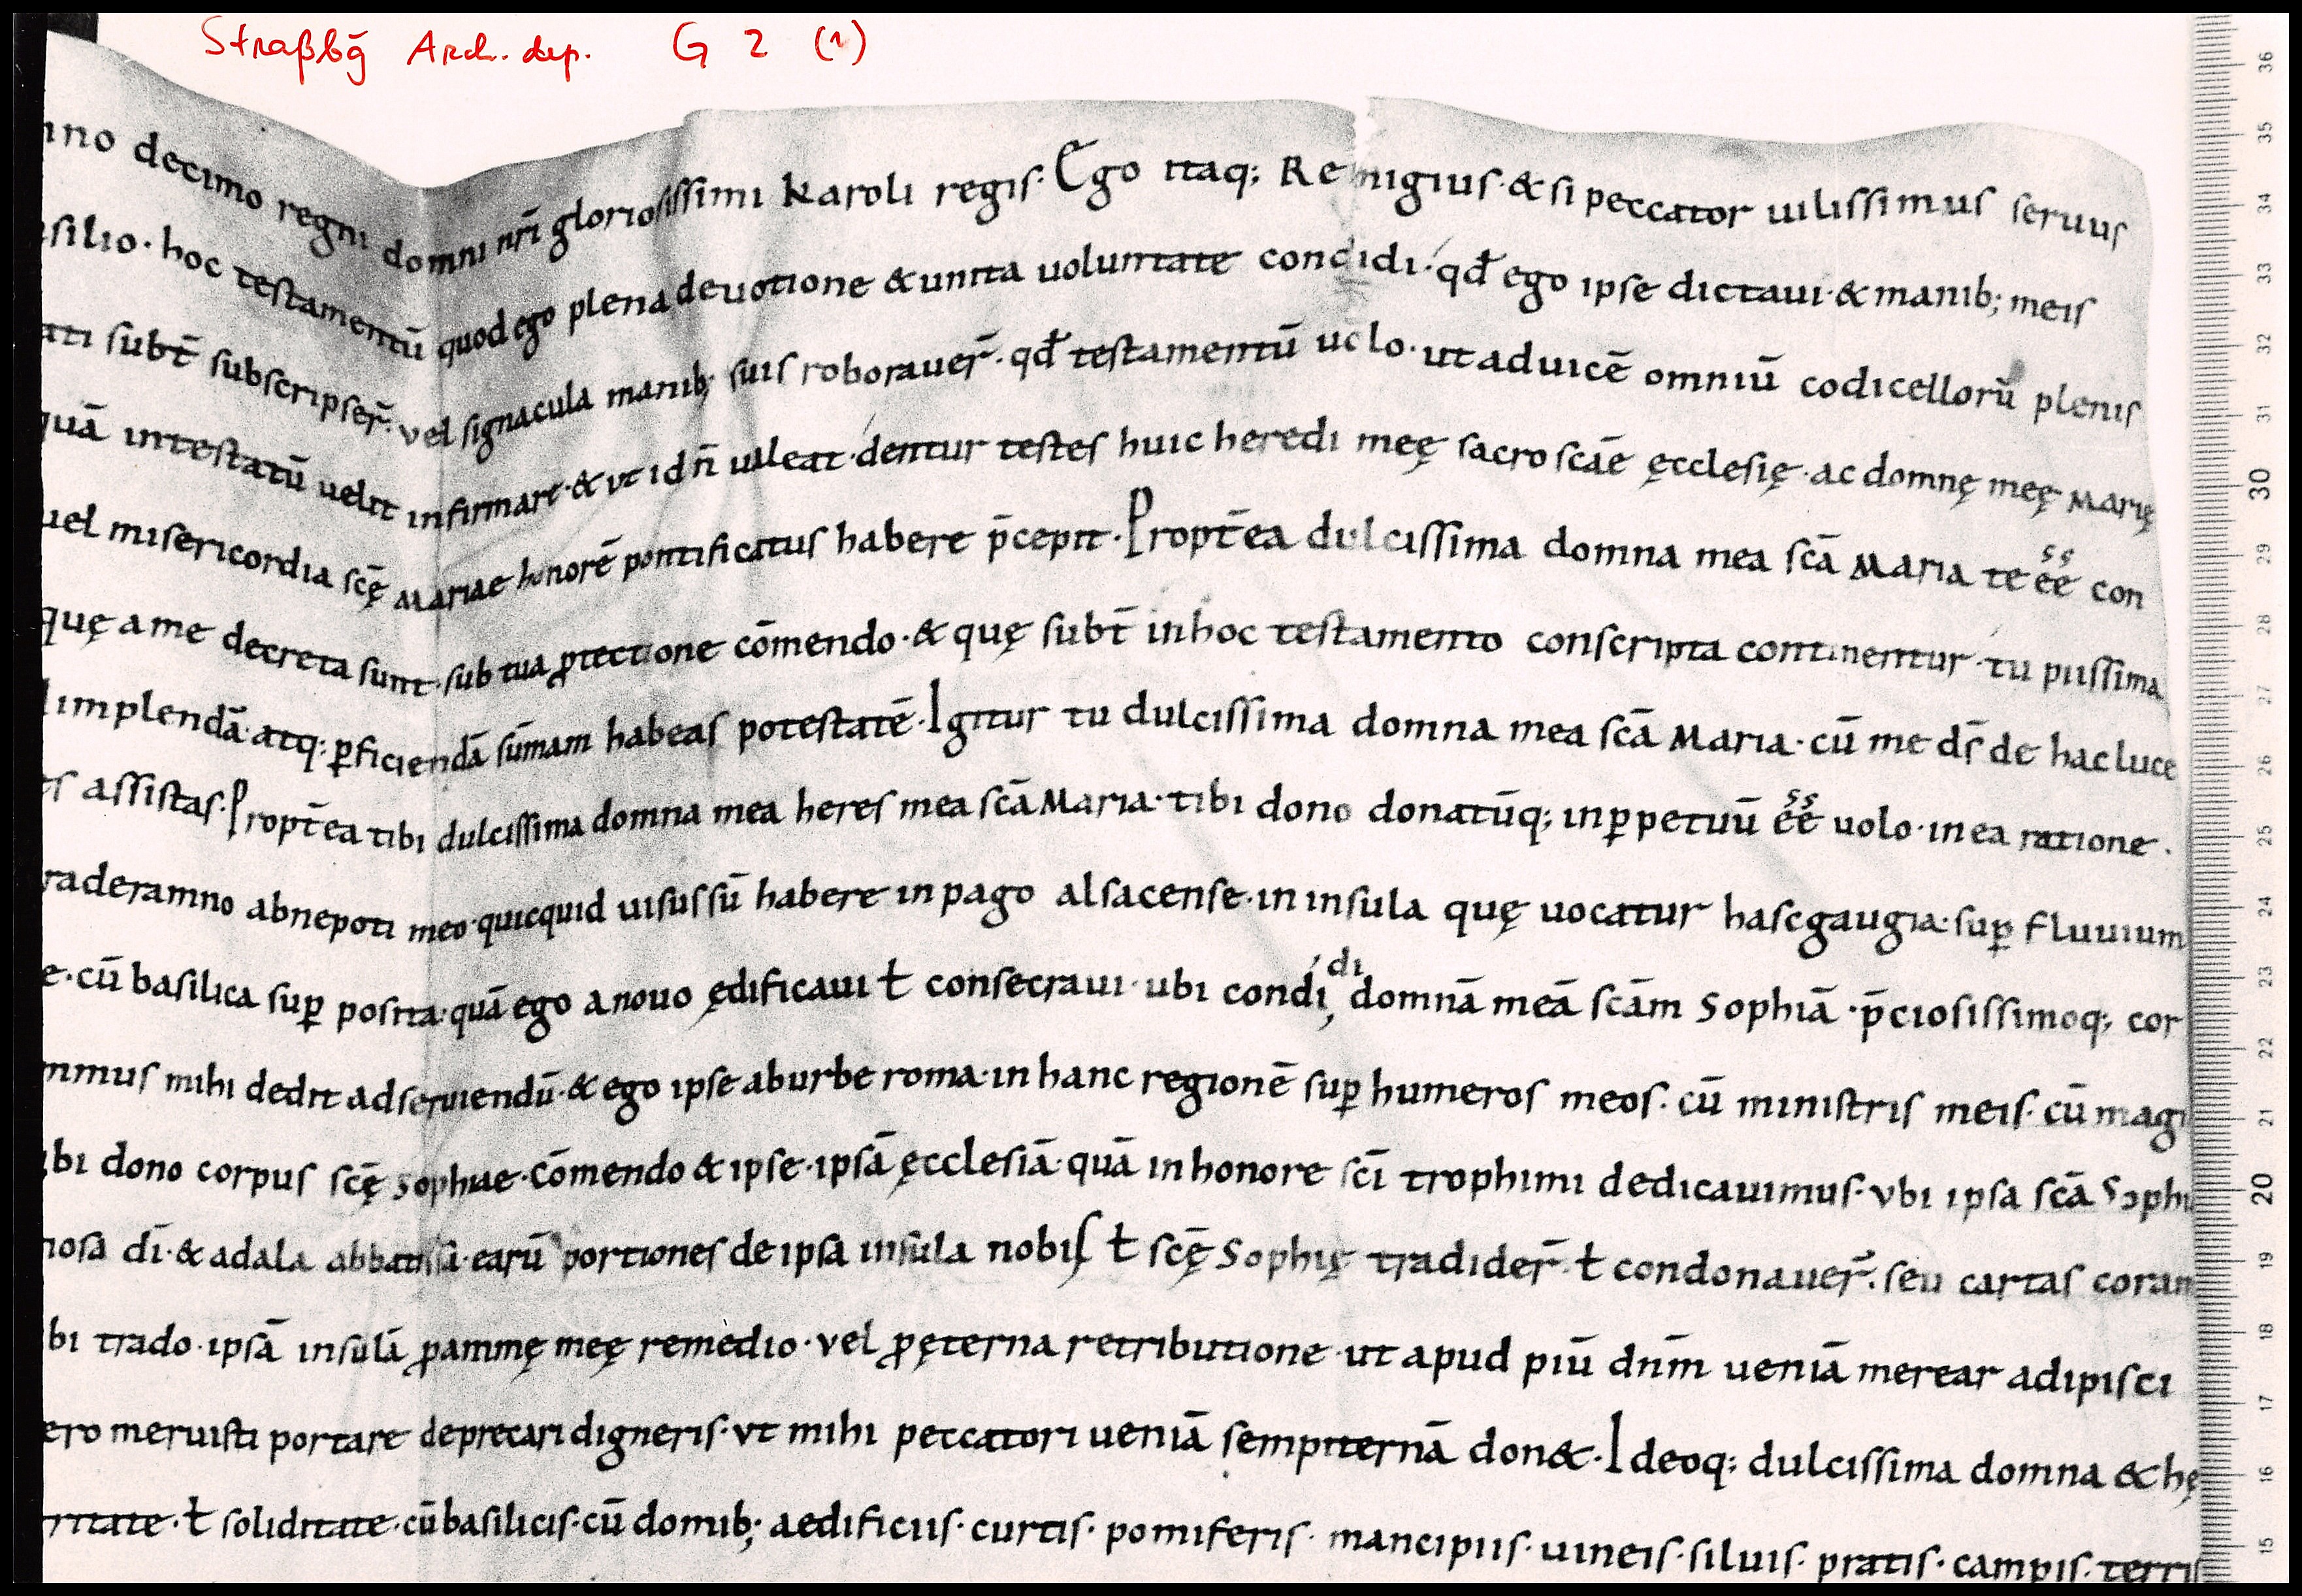 Straßbg Arch. dep. G 2 (1)
nno decimo regni domni nr̄i gloriosissimi karoli regis· Ego itaq; Remigius· & si peccator uilissimus seruus
silio· hoc testamentū quod ego plena deuotione & unita uoluntate condidi· qđ ego ipse dictaui· & manib; meis
ati subt̄ subscripser̄· vel signacula manib; suis roborauer̄· qđ testamentū uolo· ut ad uicē omniū codicellorū plenis
quā intestatū uelit infirmare· & vt id n̄ ualeat· dentur testes huic heredi meę sacro scāe ęcclesię· ac domnę meę Marię
uel misericordia scę̄ Mariae honorē pontificatus habere p̄cepit· Propt̄ea dulcissima domna mea scā Maria te ēē con
ss
quę a me decreta sunt· sub tua ꝓtectione cōmendo· & quę subt̄ in hoc testamento conscripta continentur· tu piissima
implendā· atq; ꝑficiendā sūmam habeas potestatē· Igitur tu dulcissima domna mea scā Maria· cū me dr̄ de hac luce
es assistas· Propt̄ea tibi dulcissima domna mea heres mea scā Maria· tibi dono donatūq; in ꝑpetuū ēē uolo· in ea ratione·
ss
raderamno abnepoti meo· quicquid uisus sū habere in pago alsacense· in insula quę uocatur hascgaugia· suꝑ fluuium
e· cū basilica suꝑ posita· quā ego a nouo ędificaui ł consecraui· ubi condi, domnā meā scām Sophiā· p̄ciosissimoq; cor
di
mmus mihi dedit ad seruiendū· & ego ipse ab urbe roma· in hanc regionē suꝑ humeros meos· cū ministris meis· cū magi
bi dono corpus scę̄ Sophiae· Cōmendo & ipse· ipsā ęcclesiā· quā in honore scī trophimi dedicauimus· vbi ipsa scā Sophi
iosa dī· & adala abbatissa· earū portiones de ipsa insula nobis ł scę̄ Sophię tradider̄· ł condonauer̄· seu cartas coram
bi trado· ipsā insulā ꝓ animę meę remedio· vel ꝓ ęterna retributione· ut apud piū dnm̄ ueniā merear adipisci
ero meruisti portare deprecari digneris· vt mihi peccatori ueniā sempiternā don&· Ideoq; dulcissima domna & hę
ritate· ł soliditate· cū basilicis· cū domib; aedificiis· curtis· pomiferis· mancipiis· uineis· siluis· pratis· campis· terris
36
35
34
33
32
31
30
29
28
27
26
25
24
23
22
21
20
19
18
17
16
15